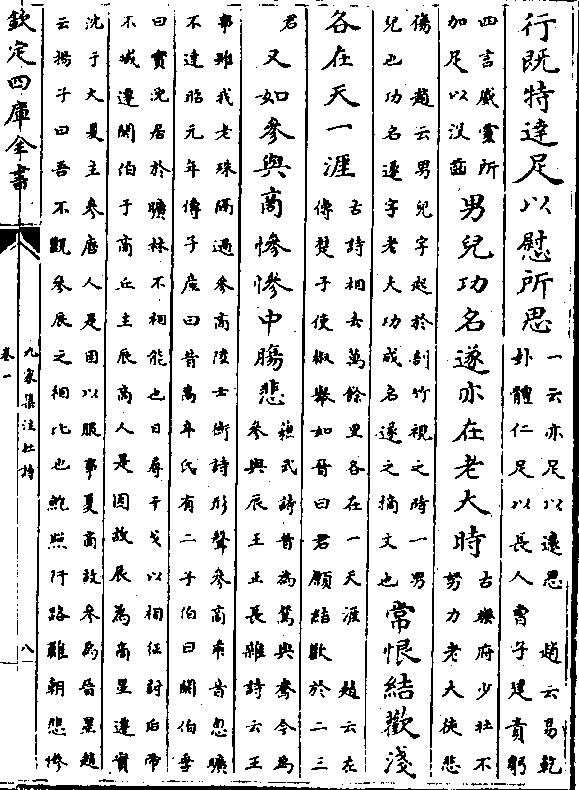 行既特達足以慰所思
一云亦足以遠思 趙云易乾
卦體仁足以長人曹子建責躬
四言威靈所
加足以沒齒
男兒功名遂亦在老大時
古樂府少壯不
努力老大徒悲
傷 趙云男兒字起於剖竹視之時一男
兒也功名遂字老夫功成名遂之摘文也
常恨結歡淺
各在天一涯
古詩相去萬餘里各在一天涯 趙云左
傳楚子使椒舉如晉曰君願結歡於二三
君
又如參與商慘慘中腸悲
蘇武詩昔為鴛與鴦今為
參與辰王正長雜詩云王
事離我志殊隔過參商陸士衡詩形聲參商乖音息曠
不達昭元年傳子產曰昔高辛氏有二子伯曰閼伯季
曰實沈居於曠林不相能也日尋干戈以相征討后帝
不臧遷閼伯于商丘主辰商人是因故辰為商星遷實
沈于大夏主參唐人是因以服事夏商故參為晉星趙
云揚子曰吾不觀參辰之相比也鮑照行路難朝悲慘
欽定四庫全書
九家集注杜詩
卷一
八